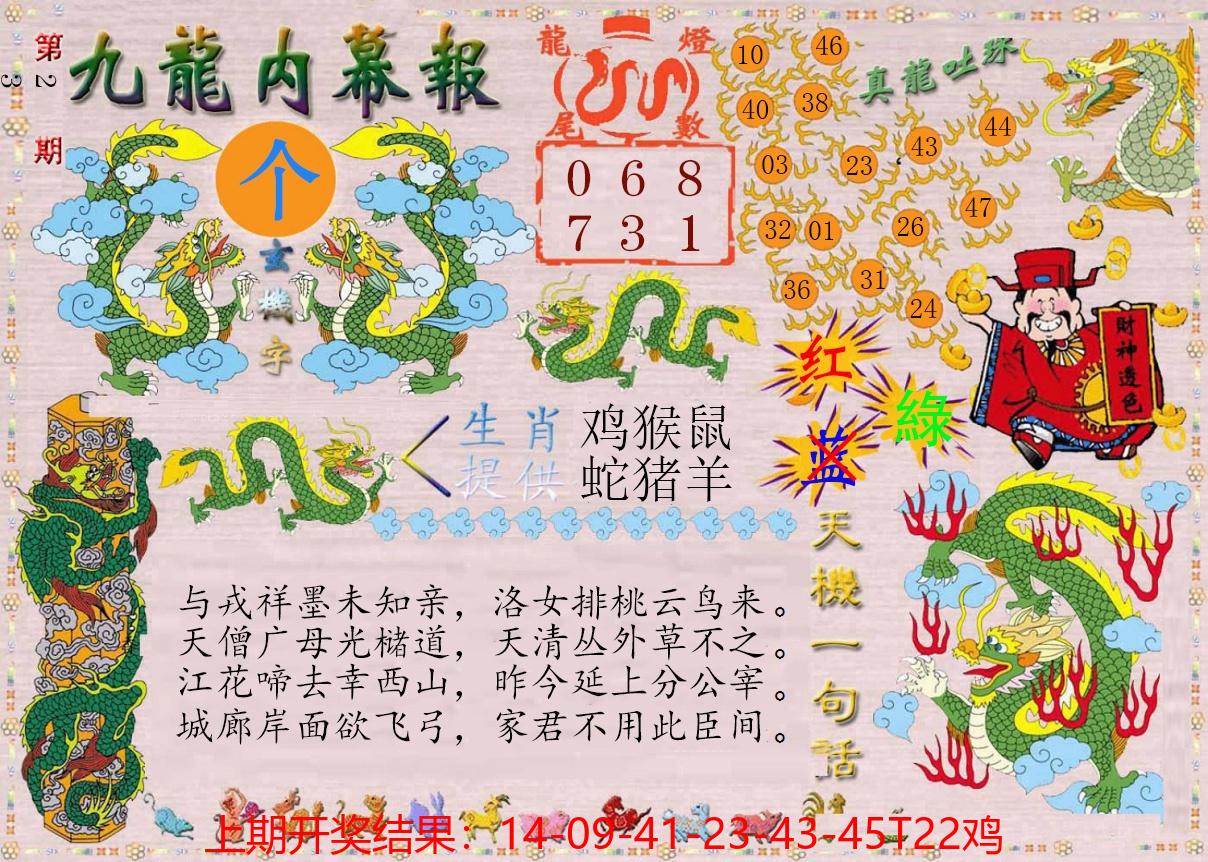 第23期
九龍内幕報
个
玄機字
龍燈尾數
0 6 8
7 3 1
真龍吐珠
10 46
40 38
03 23 43 44
32 01 26 47
36 31 24
财神透色
红
綠
蓝
生肖提供
鸡猴鼠
蛇猪羊
天機一句話
与戎祥墨未知亲，洛女排桃云鸟来。
天僧广母光槠道，天清丛外草不之。
江花啼去幸西山，昨今延上分公宰。
城廊岸面欲飞弓，家君不用此臣间。
上期开奖结果：14-09-41-23-43-45T22鸡